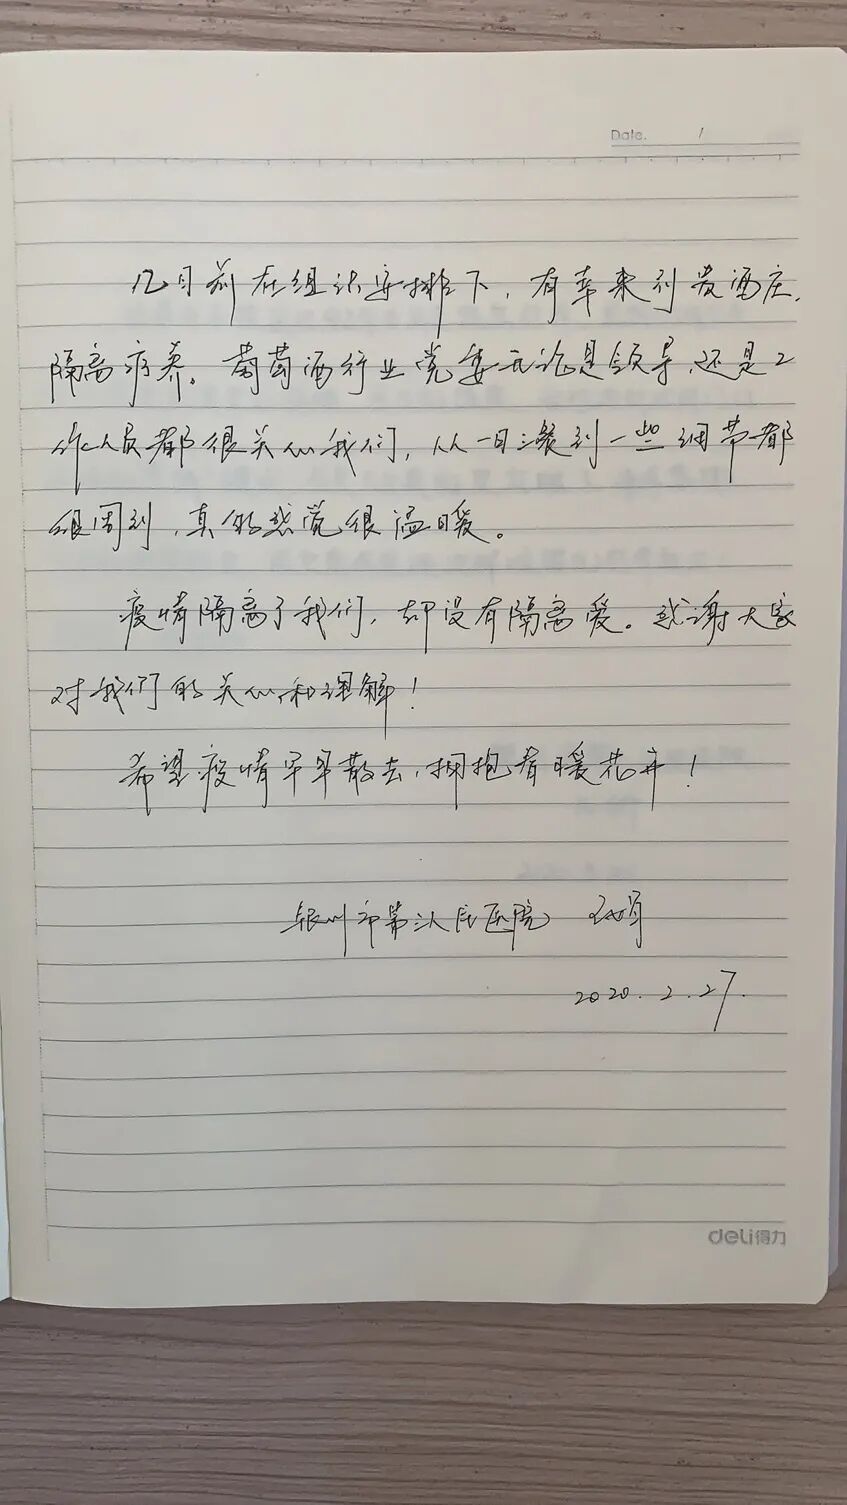 Date. /
几日前在组织安排下，有幸来到贵酒庄，
隔离疗养。葡萄酒行业党委无论是领导，还是工
作人员都很关心我们，从一日三餐到一些细节都
很周到，真的感觉很温暖。
疫情隔离了我们，却没有隔离爱。感谢大家
对我们的关心和理解！
希望疫情早早散去，拥抱春暖花开！
银川市第一人民医院
2020.2.27.
deli得力